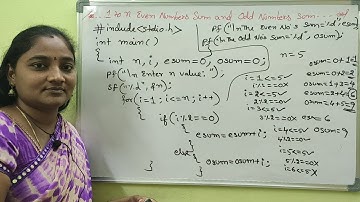 1 to n Even Numbers Sum and Odd Numbers Sum
#include<stdio.h>
int main()
{
int n, i, esum=0, osum=0;
pf("\n Enter n value:");
sf("%d", &n);
for(i=1; i<=n; i++)
{
if(i%2==0)
{
esum=esum+i;
}
else
{
osum=osum+i;
}
}
pf("\n The Even No's Sum=%d", esum);
pf("\n The Odd No's Sum=%d", osum);
}
n=5
i=1<=5✓
1%2==0X
i=2<=5✓
2%2==0✓
i=3<=5✓
3%2==0X
i=4<=5✓
4%2==0✓
i=5<=5✓
5%2==0X
i=6<=5X
osum=0+1=1
esum=0+2=2
osum=1+3=4
esum=2+4=6
osum=4+5=9
es=6
osum=9